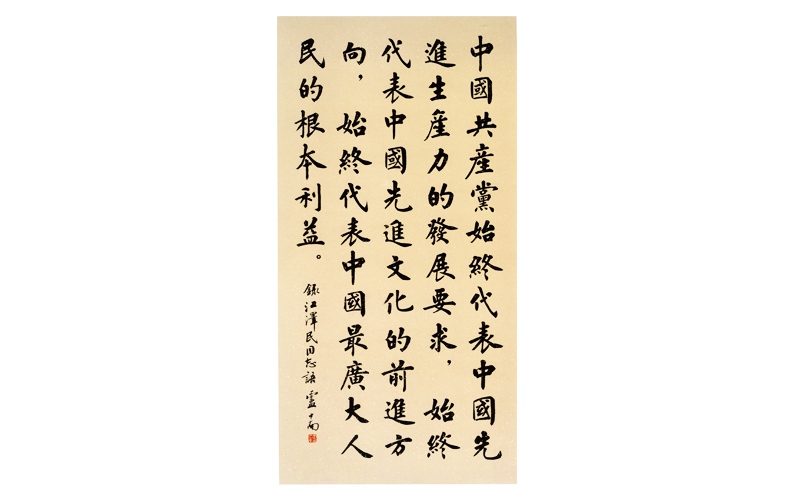 中國共產黨始終代表中國先
進生產力的發展要求，始終
代表中國先進文化的前進方
向，始終代表中國最廣大人
民的根本利益。
錄江澤民同志語 盧中南